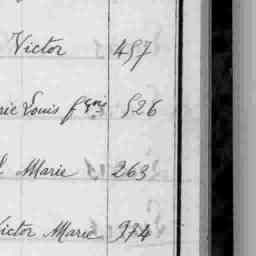 Victor 457
ric Louis fçois 526
Marie 263
Victor Marie 334